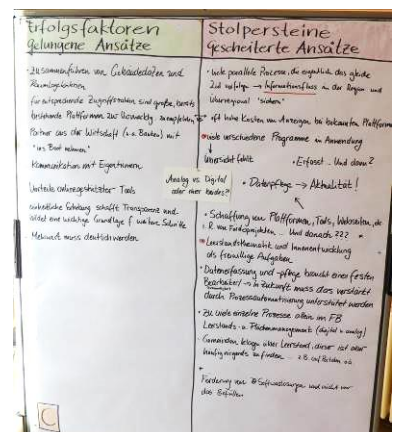 Erfolgsfaktoren
gelungene Ansätze
• Zusammenführen von Gebäudedaten und
für entsprechende Zugriffszahlen sind große, bereits
bestehende Plattformen zur
Partner aus der Wirtschaft (z.B. Banken) mit
"ins Boot nehmen"
Kommunikation mit Eigentümern
Vorteile onlinegestützter Tools
einheitliche Erfassung schafft Transparenz und
bildet eine wichtige Grundlage f. weitere Schritte
Mehrwert muss deutlich werden
C
Analog vs. Digital
oder eher beides?
Stolpersteine
gescheiterte Ansätze
• viele parallele Prozesse, die eigentlich das gleiche
Ziel verfolgen → Informationsfluss in der Region und
überregional "sichern"
• oft hohe Kosten von Anzeigen bei bekannten Plattformen
• viele verschiedene Programme in Anwendung
↓
Übersicht fehlt
• Erfasst... Und dann?
• Datenpflege → Aktualität!
• Schaffung von Plattformen, Tools, Webseiten, etc
i. R. von Förderprojekten... Und danach ???
• Leerstandsthematik und Innenentwicklung
als freiwillige Aufgaben
• Datenerfassung und -pflege braucht einen festen
Bearbeiter! → in Zukunft muss das verstärkt
durch Prozessautomatisierung unterstützt werden
• Zu viele einzelne Prozesse allein im FB
Leerstands- u. Flächenmanagement (digital u. analog)
• Kommunen klagen über Leerstand, dieser ist aber
häufig nirgends zu finden... z.B. auf
•
Förderung von Softwarelösungen und nicht nur
das Befüllen